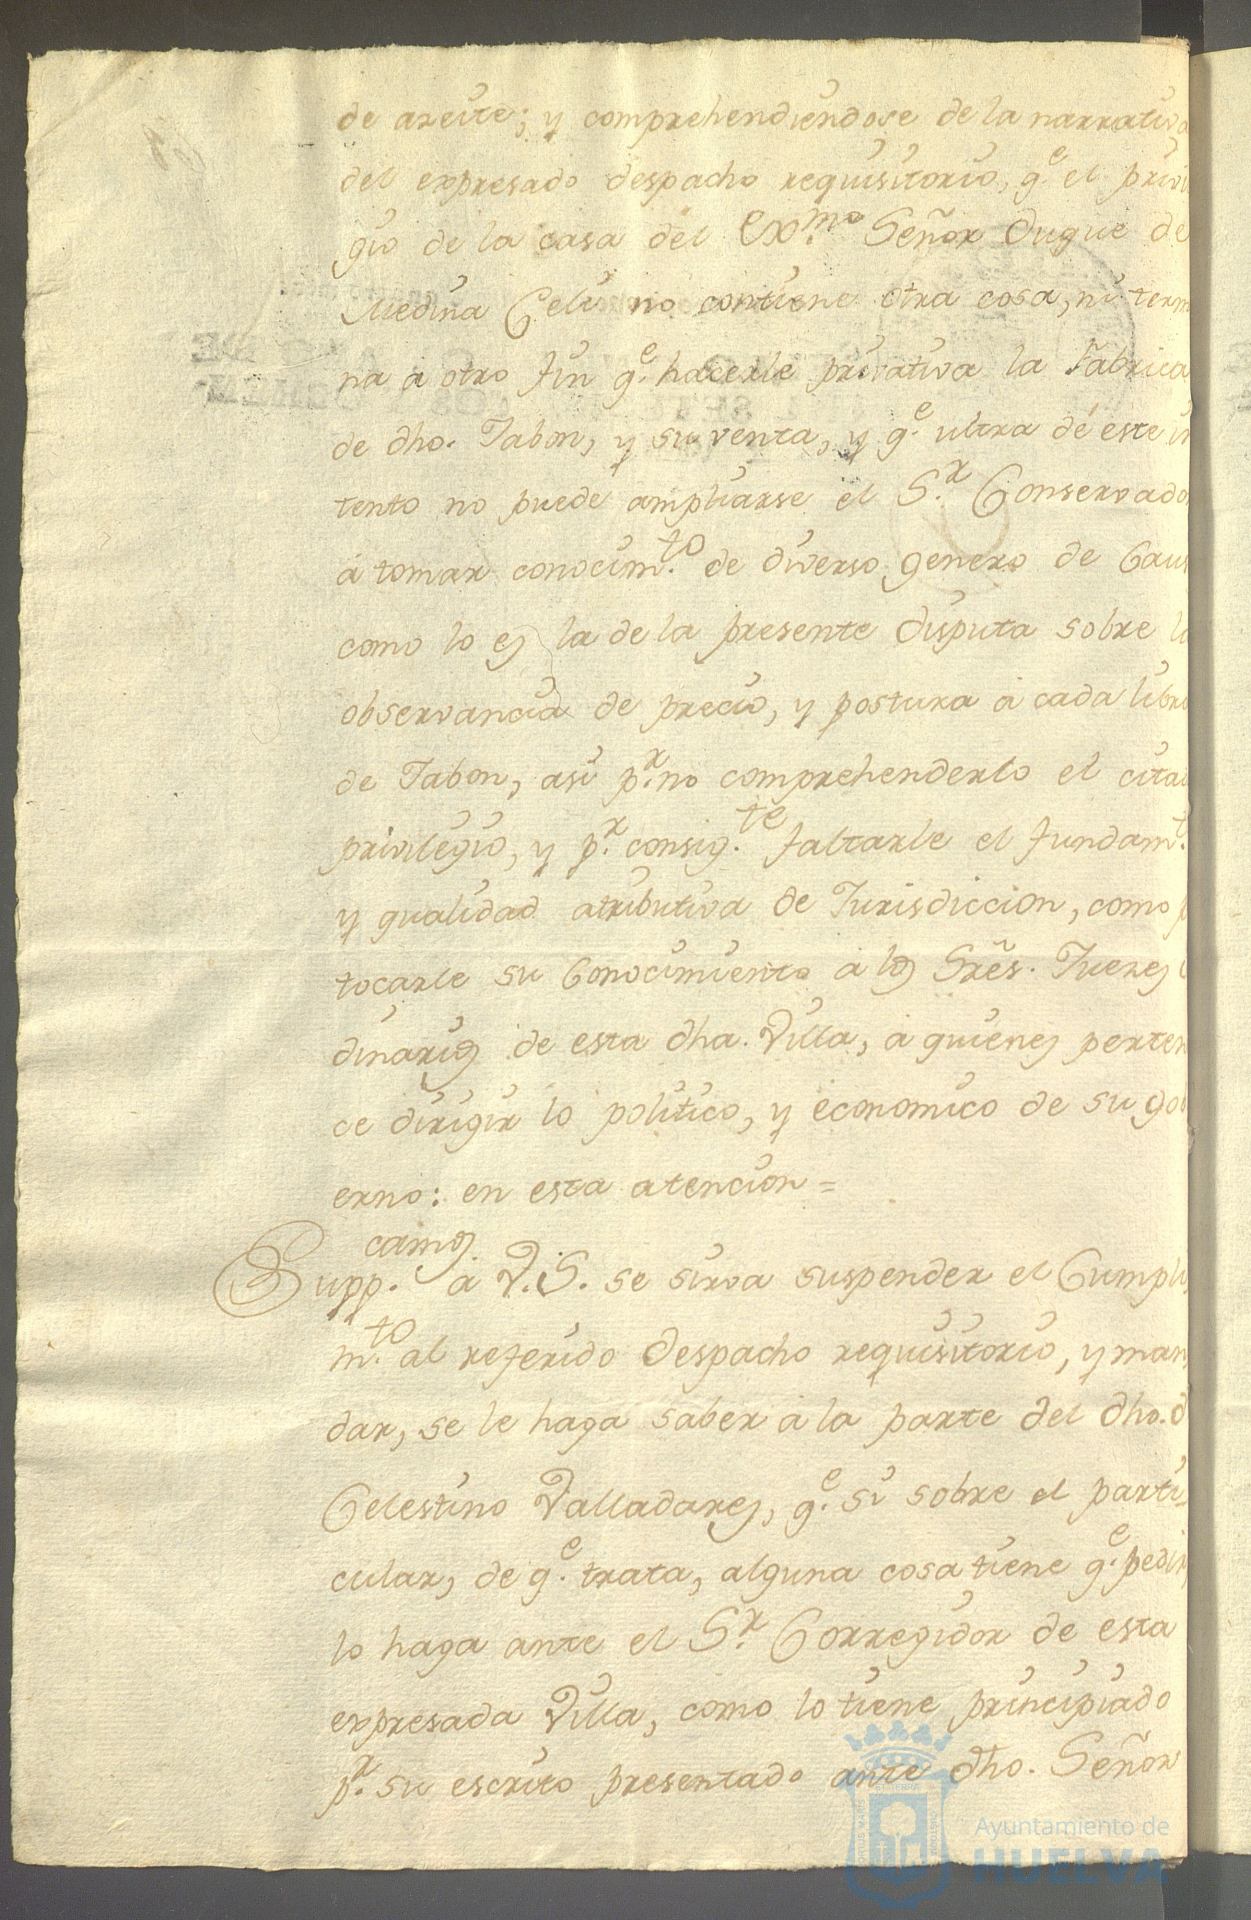 de azeite; y comprehendiendose de la narrativa
del expresado despacho requisitorio, q.e el privi
gio de la casa del Exmo. Señor Duque de
Medina Celi no contiene otra cosa, ni term
na a otro fin q.e hacerle privativa la Fabrica
de dho. Jabon, y su venta, y q.e ultra de este in
tento no puede ampliarse el S.r Conservado
á tomar conocim.to de diverso genero de Caus
como lo es la de la presente disputa sobre l
observancia de precio, y postura á cada libra
de Jabon, asi p.r no comprehenderlo el citad
privilegio, y p.r consig.te faltarle el fundam.t
y qualidad atributiva de Jurisdiccion, como p
tocarle su Conocimiento a los Sres. Juezes
dinarios de esta dha. Villa, á quienes perten
ce dirigir lo politico, y economico de su gob
erno: en esta atencion =
Supp.camos a V.S. se sirva suspender el Cumpli
m.to al referido Despacho requisitorio, y man
dar, se le haga saber a la parte del dho. d
Celestino Valladares, q.e si sobre el parti
cular, de q.e trata, alguna cosa tiene q.e pedir
lo haga ante el S.r Corregidor de esta
expresada Villa, como lo tiene principiado
p.r su escrito presentado ante dho. Señor
Ayuntamiento de
HUELVA